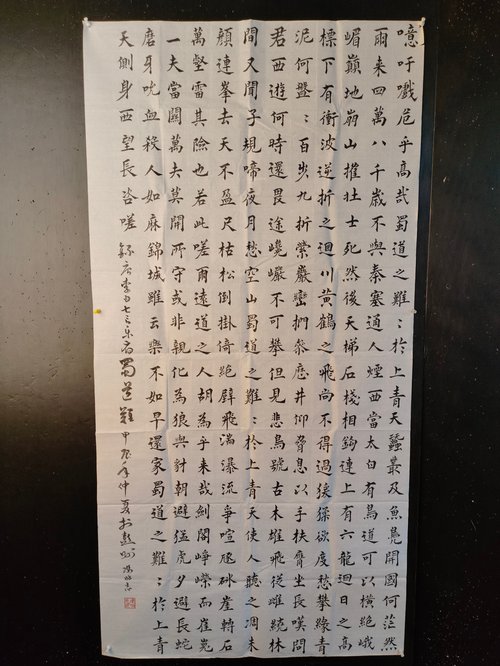 噫吁嚱危乎高哉蜀道之難〻於上青天蠶叢及魚鳧開國何茫然
爾来四萬八千歲不與秦塞通人煙西當太白有鳥道可以橫絕峨
嵋巔地崩山摧壯士死然後天梯石棧相鉤連上有六龍迴日之高
標下有衝波逆折之迴川黃鶴之飛尚不得過猨猱欲度愁攀緣青
泥何盤〻百步九折縈巖巒捫叅歷井仰脅息以手撫膺坐長嘆問
君西遊何時還畏途巉巖不可攀但見悲鳥號古木雄飛從雌繞林
間又聞子規啼夜月愁空山蜀道之難〻於上青天使人聽之凋朱
顏連峯去天不盈尺枯松倒掛倚絕壁飛湍瀑流爭喧豗砯崖轉石
萬壑雷其險也若此嗟爾遠道之人胡為乎来哉劍閣崢嶸而崔嵬
一夫當關萬夫莫開所守或非親化為狼與豺朝避猛虎夕避長蛇
磨牙吮血殺人如麻錦城雖云樂不如早還家蜀道之難〻於上青
天側身西望長咨嗟 錄唐李白七言樂府蜀道難 甲辰年仲夏於